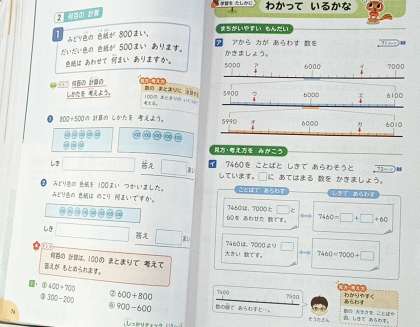 2 何百の 計算
1
みどり色の 色紙が 800まい、
だいだい色の 色紙が 500まい あります。
色紙は あわせて 何まい ありますか。
何百の 計算の
しかたを 考えよう。
見方・考え方
数の まとまりに
100の まとまりの
考える。
① 800+500の 計算の しかたを 考えよう。
しき
答え
② みどり色の 色紙を 100まい つかいました。
みどり色の 色紙は のこり 何まいですか。
しき
答え
何百の 計算は、100の まとまりで 考えて
答えが もとめられます。
① 400+700
② 600+800
③ 300-200
④ 900-600
74
しっかりチェック
学習を たしかに
わかって いるかな
まちがいやすい もんだい
ア アから カが あらわす 数を
かきましょう。
5000 ア 6000 イ 7000
5900 ウ 6000 エ 6100
5990 オ 6000 カ 6010
見方・考え方を みがこう
イ 7460を ことばと しきで あらわそうと
しています。□に あてはまる 数を かきましょう。
ことばで あらわす
しきで あらわす
7460は、7000と □と
60を あわせた 数です。
7460=□+□+60
7460は、7000より □
大きい 数です。
7460=7000+□
7400 7500
数の線で あらわすと…。
そうたさん
見方・考え方
わかりやすく
あらわす
数の 大きさを ことばや
図、しきで あらわす。